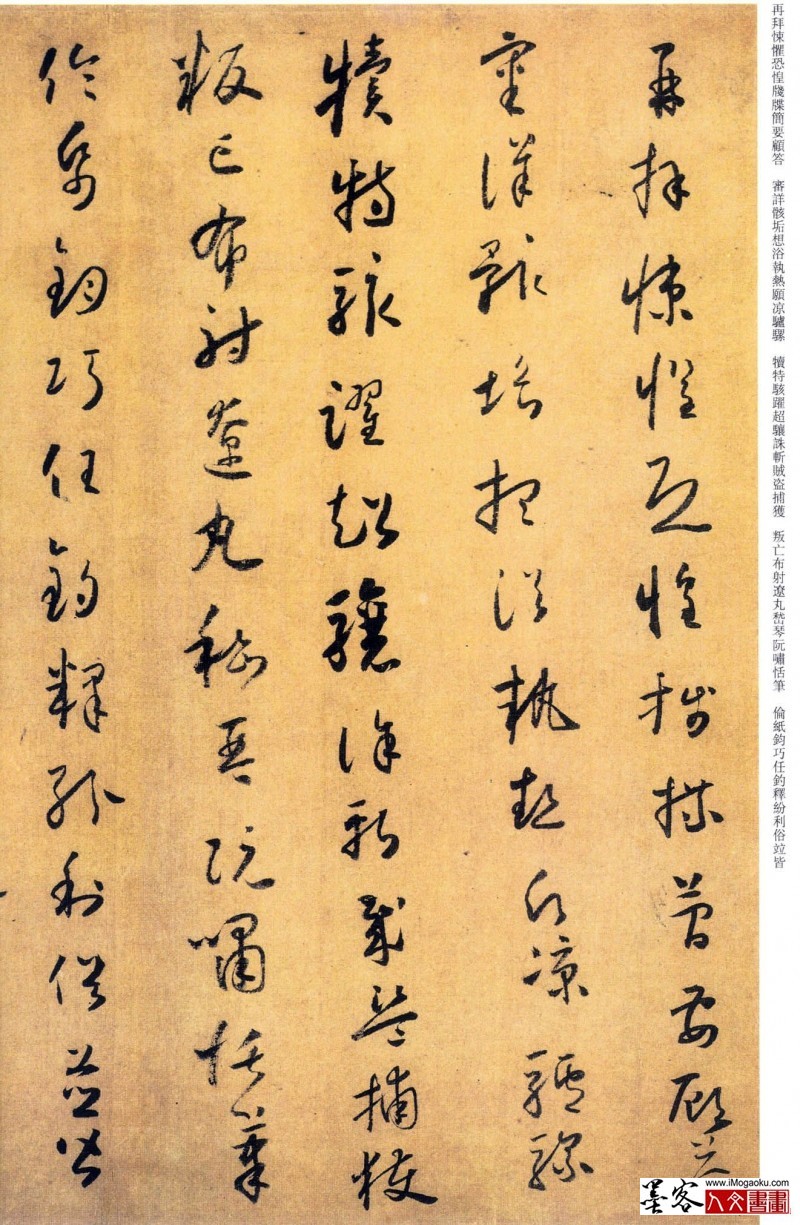 再拜悚懼恐惶牋牒簡要顧答
審詳骸垢想浴執熱願凉驢騾
犢特駭躍超驤誅斬賊盜捕獲
叛亡布射遼丸嵇琴阮嘯恬筆
倫紙鈞巧任釣釋紛利俗竝皆
再拜悚懼恐惶牋牒簡要顧答 審詳骸垢想浴執熱願凉驢騾 犢特駭躍超驤誅斬賊盜捕獲 叛亡布射遼丸嵇琴阮嘯恬筆 倫紙鈞巧任釣釋紛利俗竝皆
墨客 www.iMogaoku.com
人文書畫